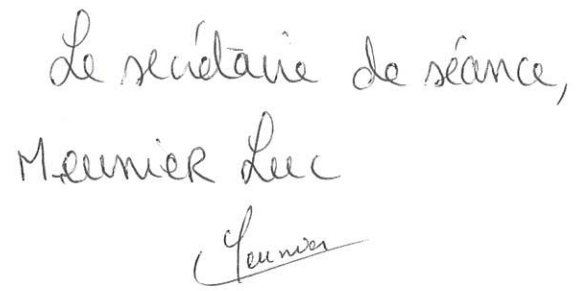 Le secrétaire de séance,
Meunier Luc
Meunier